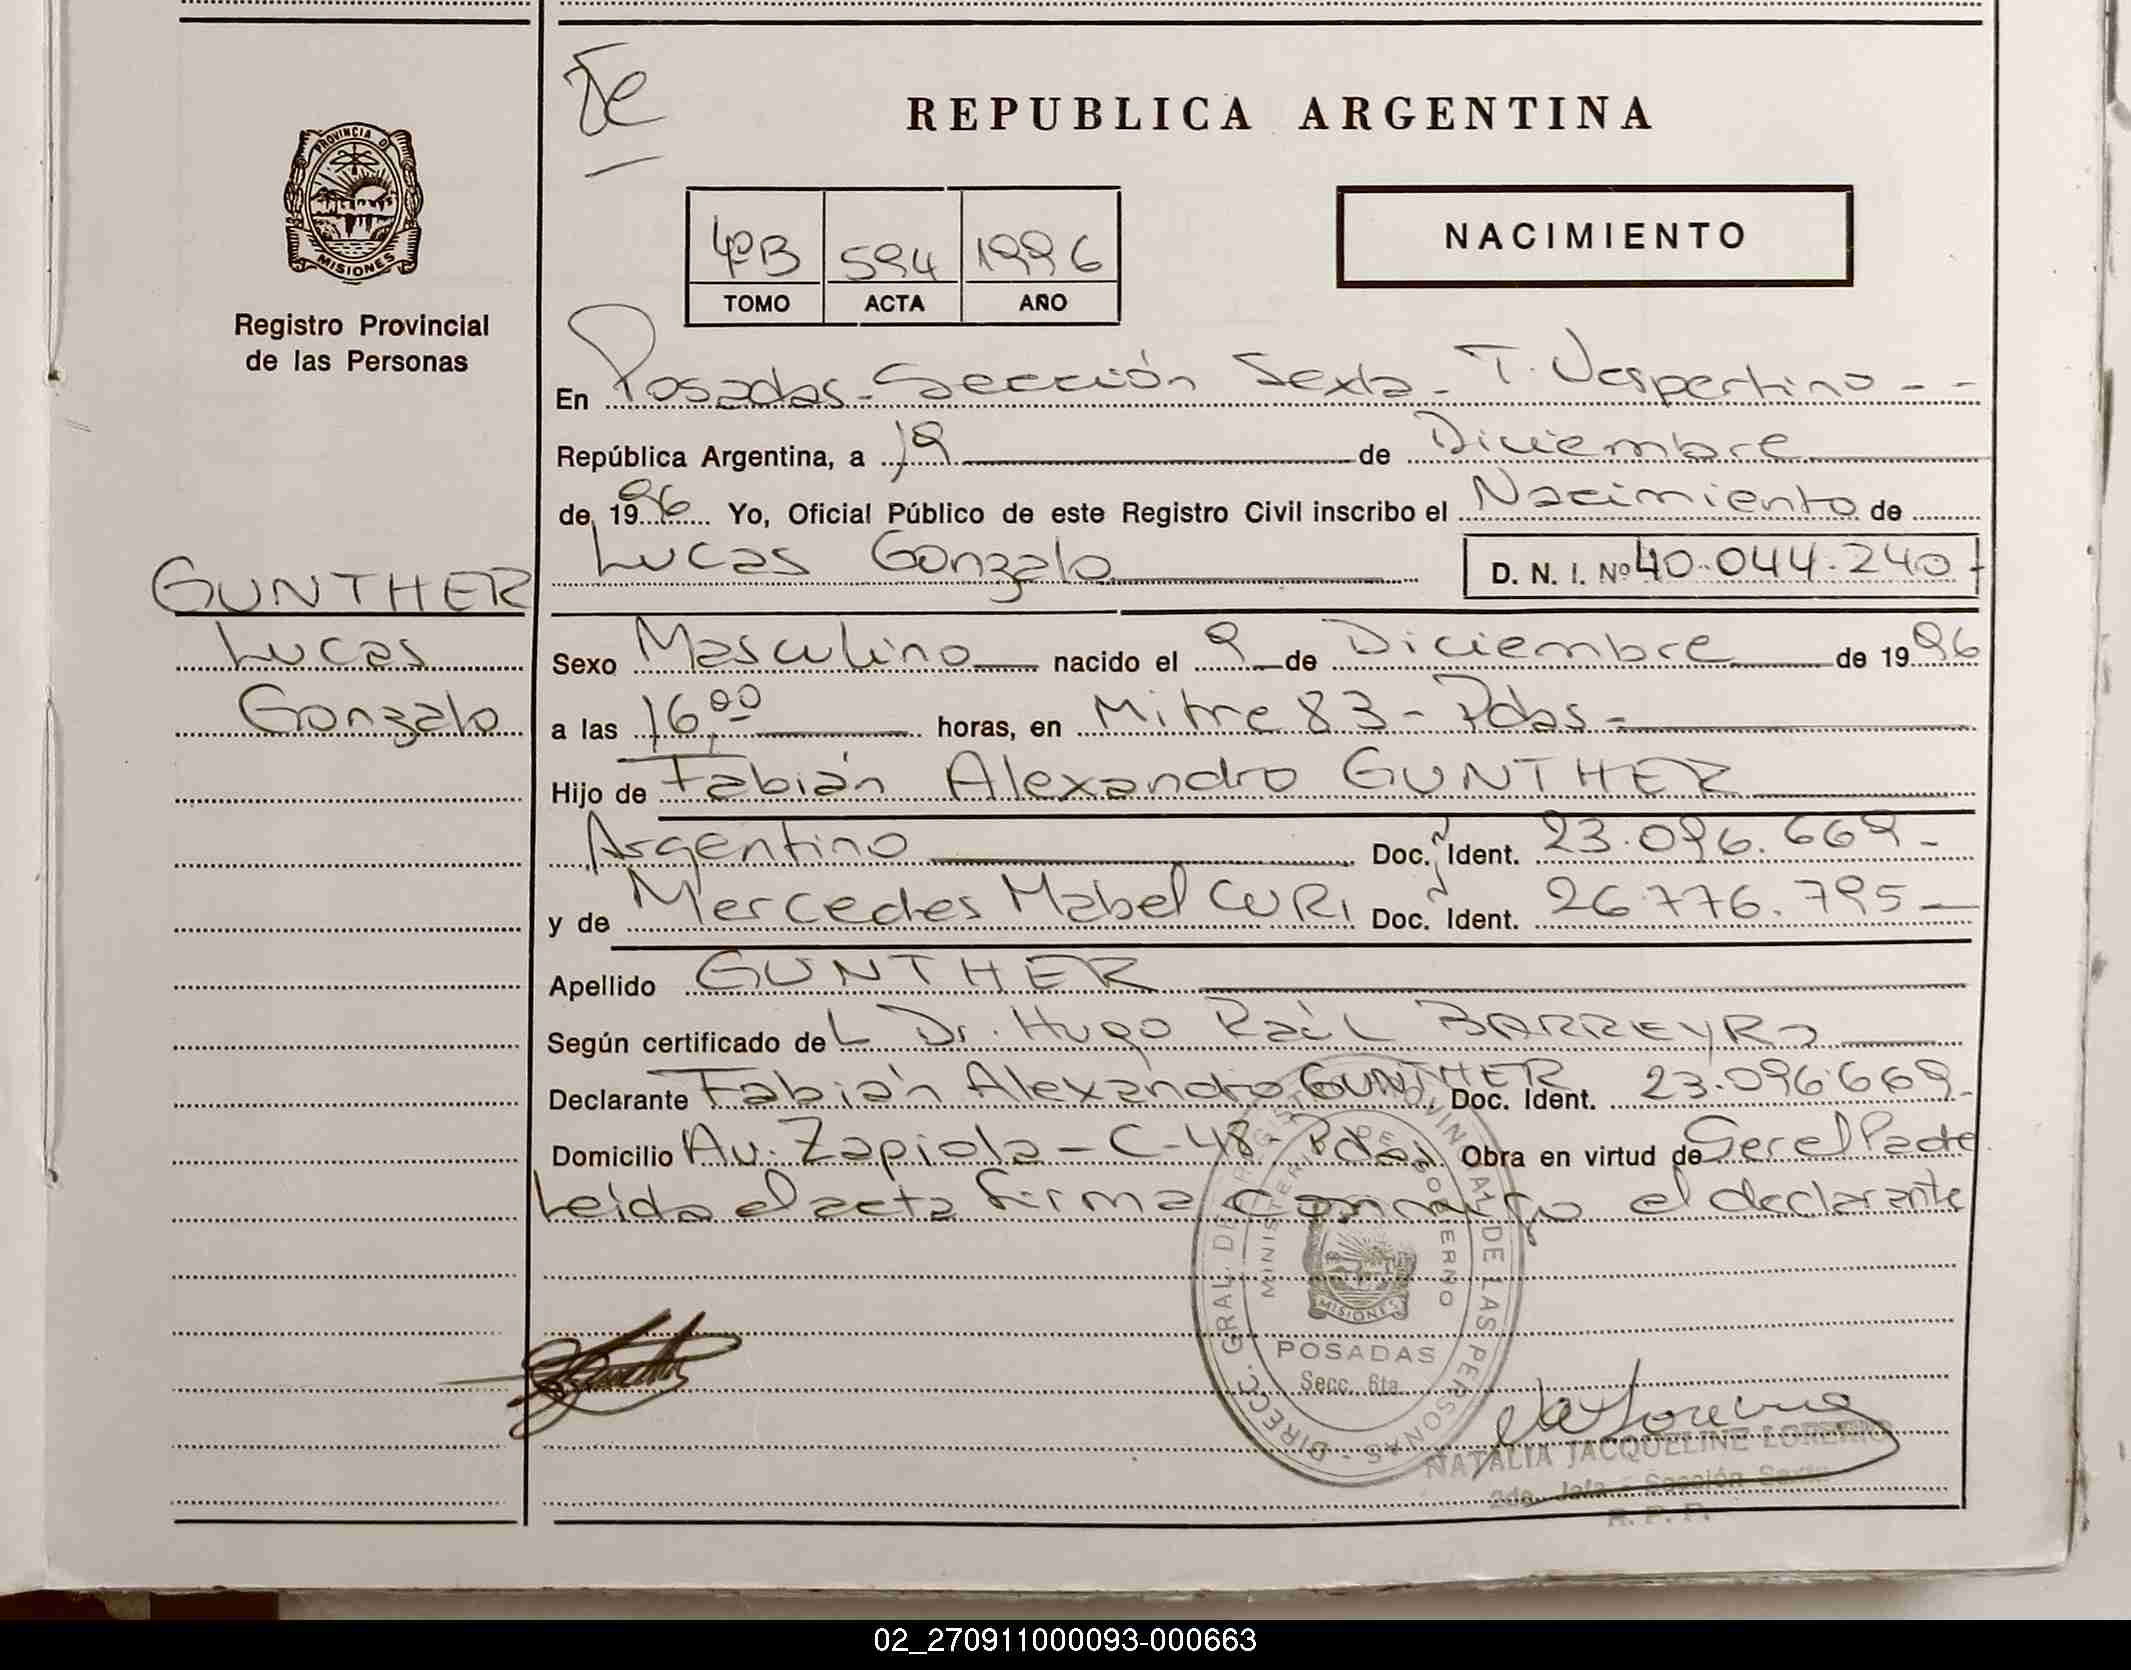 Te
REPUBLICA ARGENTINA
PROVINCIA DE
MISIONES
4ºB 594 1996
TOMO ACTA AÑO
NACIMIENTO
Registro Provincial
de las Personas
En Posadas - Sección Sexta - T. Vespertino - -
República Argentina, a 19 de Diciembre
de 1996 Yo, Oficial Público de este Registro Civil inscribo el Nacimiento de
Lucas Gonzalo D. N. I. Nº 40.044.240
GUNTHER
Lucas
Gonzalo
Sexo Masculino nacido el 9 de Diciembre de 1996
a las 16,00 horas, en Mitre 83 - Pdas -
Hijo de Fabián Alexandro GUNTHER
Argentino Doc. Ident. 23.096.669 -
y de Mercedes Mabel CURI Doc. Ident. 26.776.795 -
Apellido GUNTHER
Según certificado del Dr. Hugo Raúl BARREYRO
Declarante Fabián Alexandro GUNTHER Doc. Ident. 23.096.669 -
Domicilio Av. Zapiola - C-48 - Pdas Obra en virtud de Ser el Padre
Leída el acta firma conmigo el declarante
DIRECC. GRAL. DE REGISTRO PROVINCIAL DE LAS PERSONAS
MINISTERIO DE GOBIERNO
MISIONES
POSADAS
Secc. 6ta.
NATALIA JACQUELINE LORENZO
2da. Jefa - Sección Sexta
R. P. P.
02_270911000093-000663